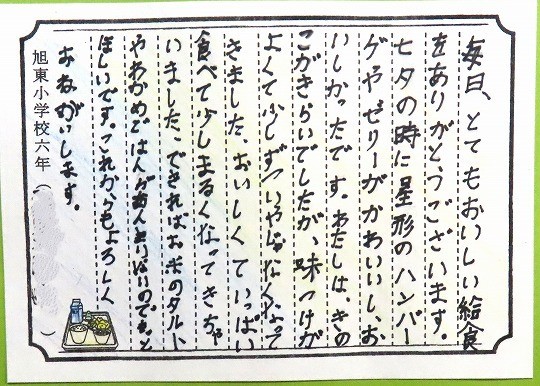 毎日、とてもおいしい給食
をありがとうございます。
七夕の時に星形のハンバー
グやゼリーがかわいいし、お
いしかったです。わたしは、きの
こがきらいでしたが、味つけが
よくて少しずついやじゃなくなって
きました。おいしくていっぱい
食べて少しまるくなってきちゃ
いました。できればお米のタルト
やわかめごはんがあんまりないのでもっと
ほしいです。これからもよろしく
おねがいします。
旭東小学校六年（　　　）